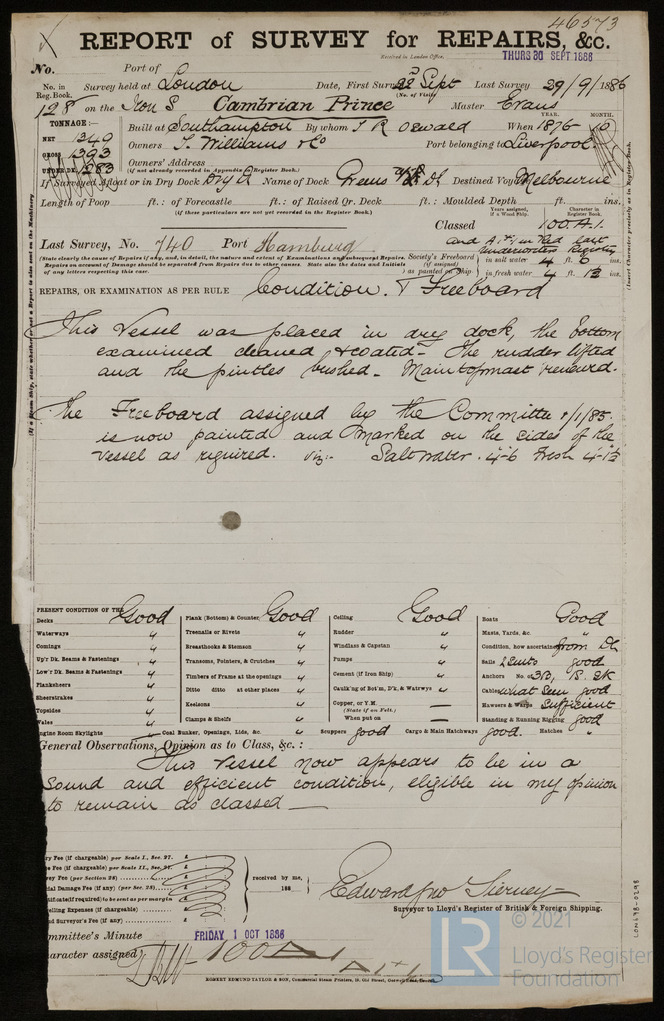 46573
REPORT of SURVEY for REPAIRS, &c.
Received in London Office,
THURS 30 SEPT 1886
No.
Port of
No. in Reg. Book.
Survey held at London Date, First Survey 22d Sept Last Survey 29/9/1886
(No. of Visits)
128 on the Iron S Cambrian Prince Master Evans
TONNAGE:—
YEAR. MONTH.
NET 1340
Built at Southampton By whom T R Oswald When 1876
GROSS 1393
Owners T. Williams & Co Port belonging to Liverpool
UNDER DK. 1283
Owners' Address
(if not already recorded in Appendix to Register Book.)
If Surveyed Afloat or in Dry Dock Dry D Name of Dock Greens Destined Voyage Melbourne
Length of Poop ft.: of Forecastle ft.: of Raised Qr. Deck ft.: Moulded Depth ft. ins.
(if these particulars are not yet recorded in the Register Book.)
Years assigned, if a Wood Ship.
Character in Register Book.
Classed 100.A.1.
Last Survey, No. 740 Port Hamburg
and A + 1 in Red Late
Underwriters Registry
(State clearly the cause of Repairs if any, and, in detail, the nature and extent of Examinations and subsequent Repairs.
Repairs on account of Damage should be separated from Repairs due to other causes. State also the dates and Initials
of any letters respecting this case.
Society's Freeboard (if assigned) as painted on Ship
in salt water 4 ft. 0 ins.
in fresh water 4 ft. 1½ ins.
REPAIRS, OR EXAMINATION AS PER RULE Condition. & Freeboard
This Vessel was placed in dry dock, the bottom
examined cleaned & coated – The rudder lifted
and the pintles bushed – Maintopmast renewed.
The Freeboard assigned by the Committee 1/1/85
is now painted and marked on the sides of the
vessel as required. viz:- Salt water. 4-6 Fresh 4-1½
PRESENT CONDITION OF THE
Decks Good
Waterways "
Comings "
Up'r Dk. Beams & Fastenings "
Low'r Dk. Beams & Fastenings "
Planksheers "
Sheerstrakes "
Topsides "
Wales "
Engine Room Skylights "
Plank (Bottom) & Counter Good
Treenails or Rivets "
Breasthooks & Stemson "
Transoms, Pointers, & Crutches "
Timbers of Frame at the openings "
Ditto ditto at other places "
Keelsons "
Clamps & Shelfs "
Coal Bunker, Openings, Lids, &c. "
Ceiling Good
Rudder "
Windlass & Capstan "
Pumps "
Cement (if Iron Ship) "
Caulk'g of Bot'm, D'k, & Watrwys "
Copper, or Y.M. —
(State if on Felt.)
When put on —
Scuppers good Cargo & Main Hatchways good.
Boats Good
Masts, Yards, &c. "
Condition, how ascertained from Dk
Sails 2 Suits good
Anchors No. of 3B, 1S. 2K
Cables what seen good
Hawsers & Warps Sufficient
Standing & Running Rigging good
Hatches "
General Observations, Opinion as to Class, &c.:
This Vessel now appears to be in a
sound and efficient condition, eligible in my opinion
to remain as classed —
ry Fee (if chargeable) per Scale I., Sec. 27. £
e Fee (if chargeable) per Scale II., Sec. 27. £
vey Fee (per Section 28) £
ial Damage Fee (if any) (per Sec. 28) £
rtificate (if required) to be sent as per margin
elling Expenses (if chargeable) £
d Surveyor's Fee (if any) £
received by me,
188
Edward Jno Tierney
Surveyor to Lloyd's Register of British & Foreign Shipping.
mmittee's Minute
FRIDAY 1 OCT 1886
haracter assigned 100 A 1
A + 1
ROBERT EDMUND TAYLOR & SON, Commercial Steam Printers, 19, Old Street, Goswell Road, London.
LON698-0298
LR
© 2021
Lloyd's Register
Foundation